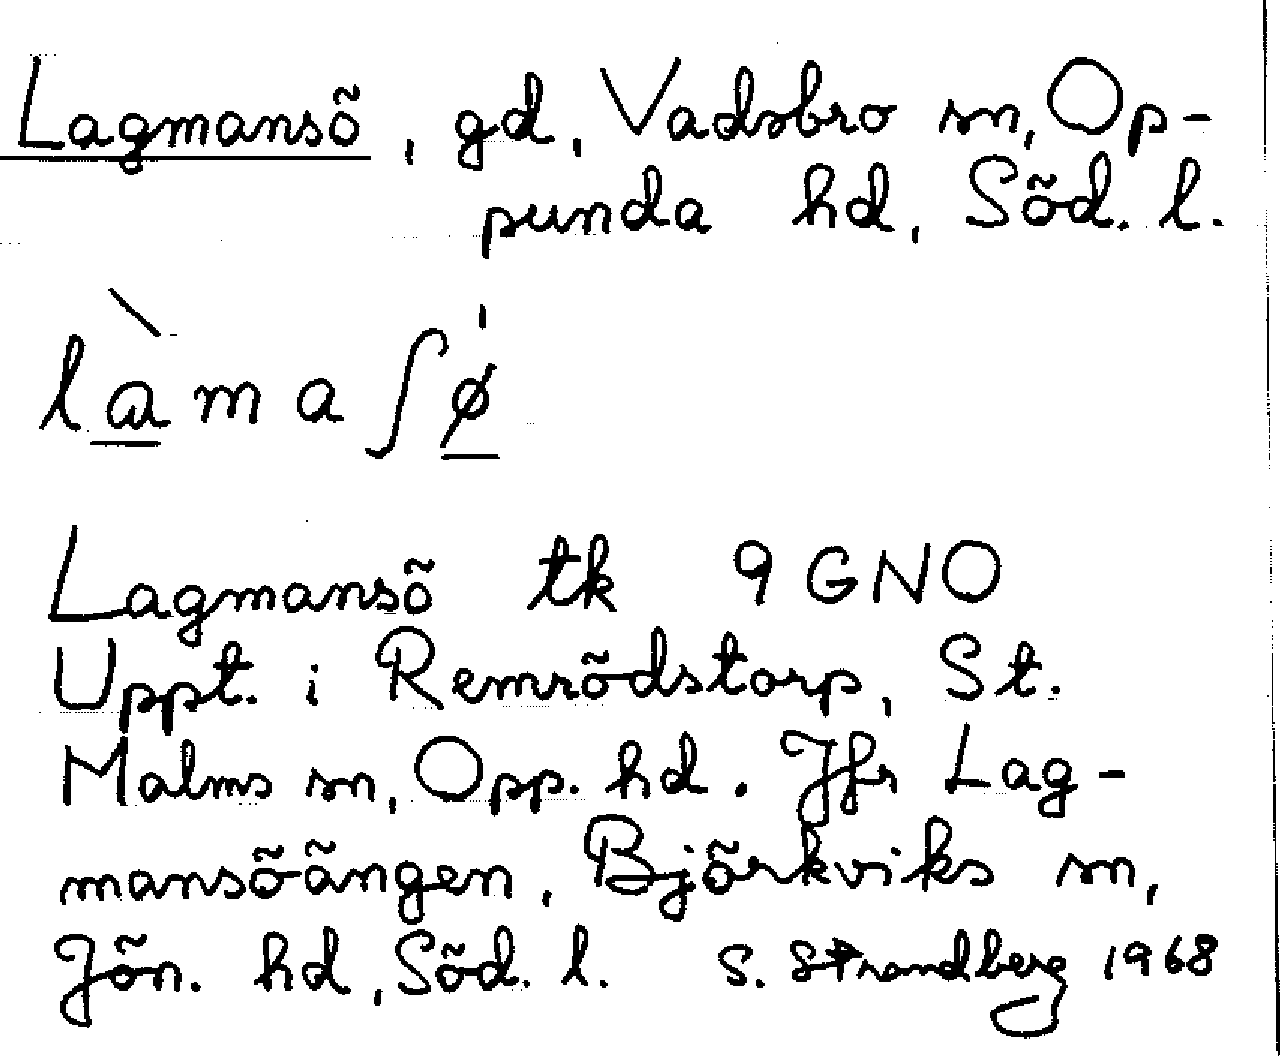 Lagmansö, gd, Vadsbro sn, Op-
punda hd, Söd. l.
làmaʃø̱
Lagmansö tk 9GNO
Uppt. i Remrödstorp, St.
Malms sn, Opp. hd. Jfr Lag-
mansöängen, Björkviks sn,
Jön. hd, Söd. l. S. Strandberg 1968